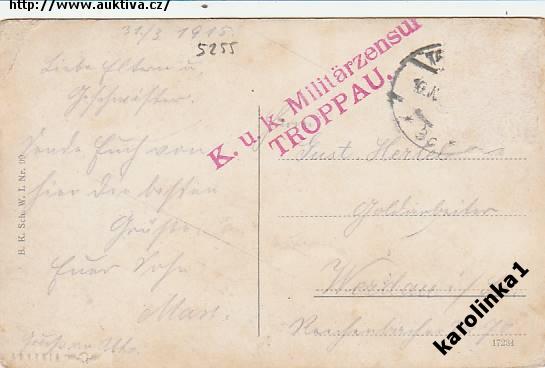 http://www.auktiva.cz/
31/3 1915
5255
Liebe Eltern u.
Geschwister.
Sende Euch von
hier die besten
Grüße
Euer Sohn
Max.
B. K. Sch. W. I. Nr. 99
K. u. k. Militärzensur
TROPPAU.
Gust. Hertel
Goldarbeiter
Werdau i/S
Reichenbacher
17234
karolinka1